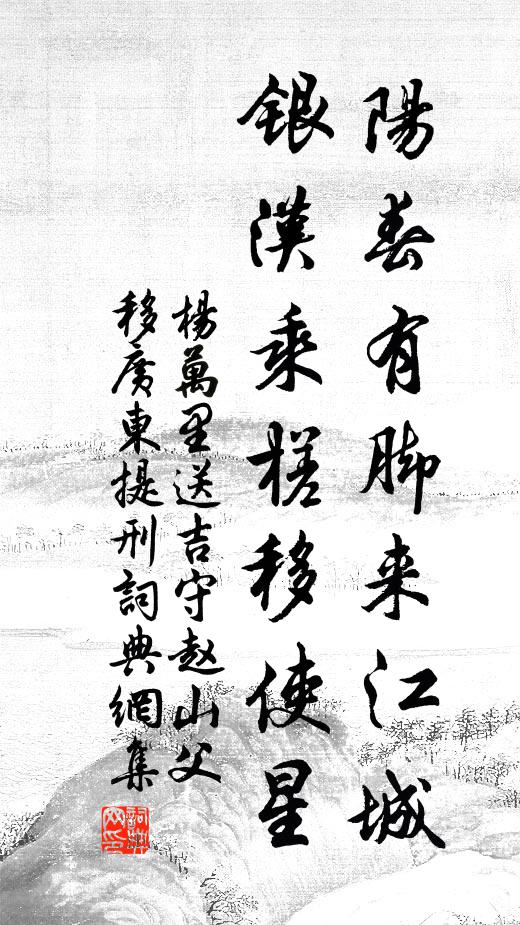 陽春有脚来江城
銀漢乘槎移使星
楊萬里送吉守赵山父
移廣東提刑詞典網集